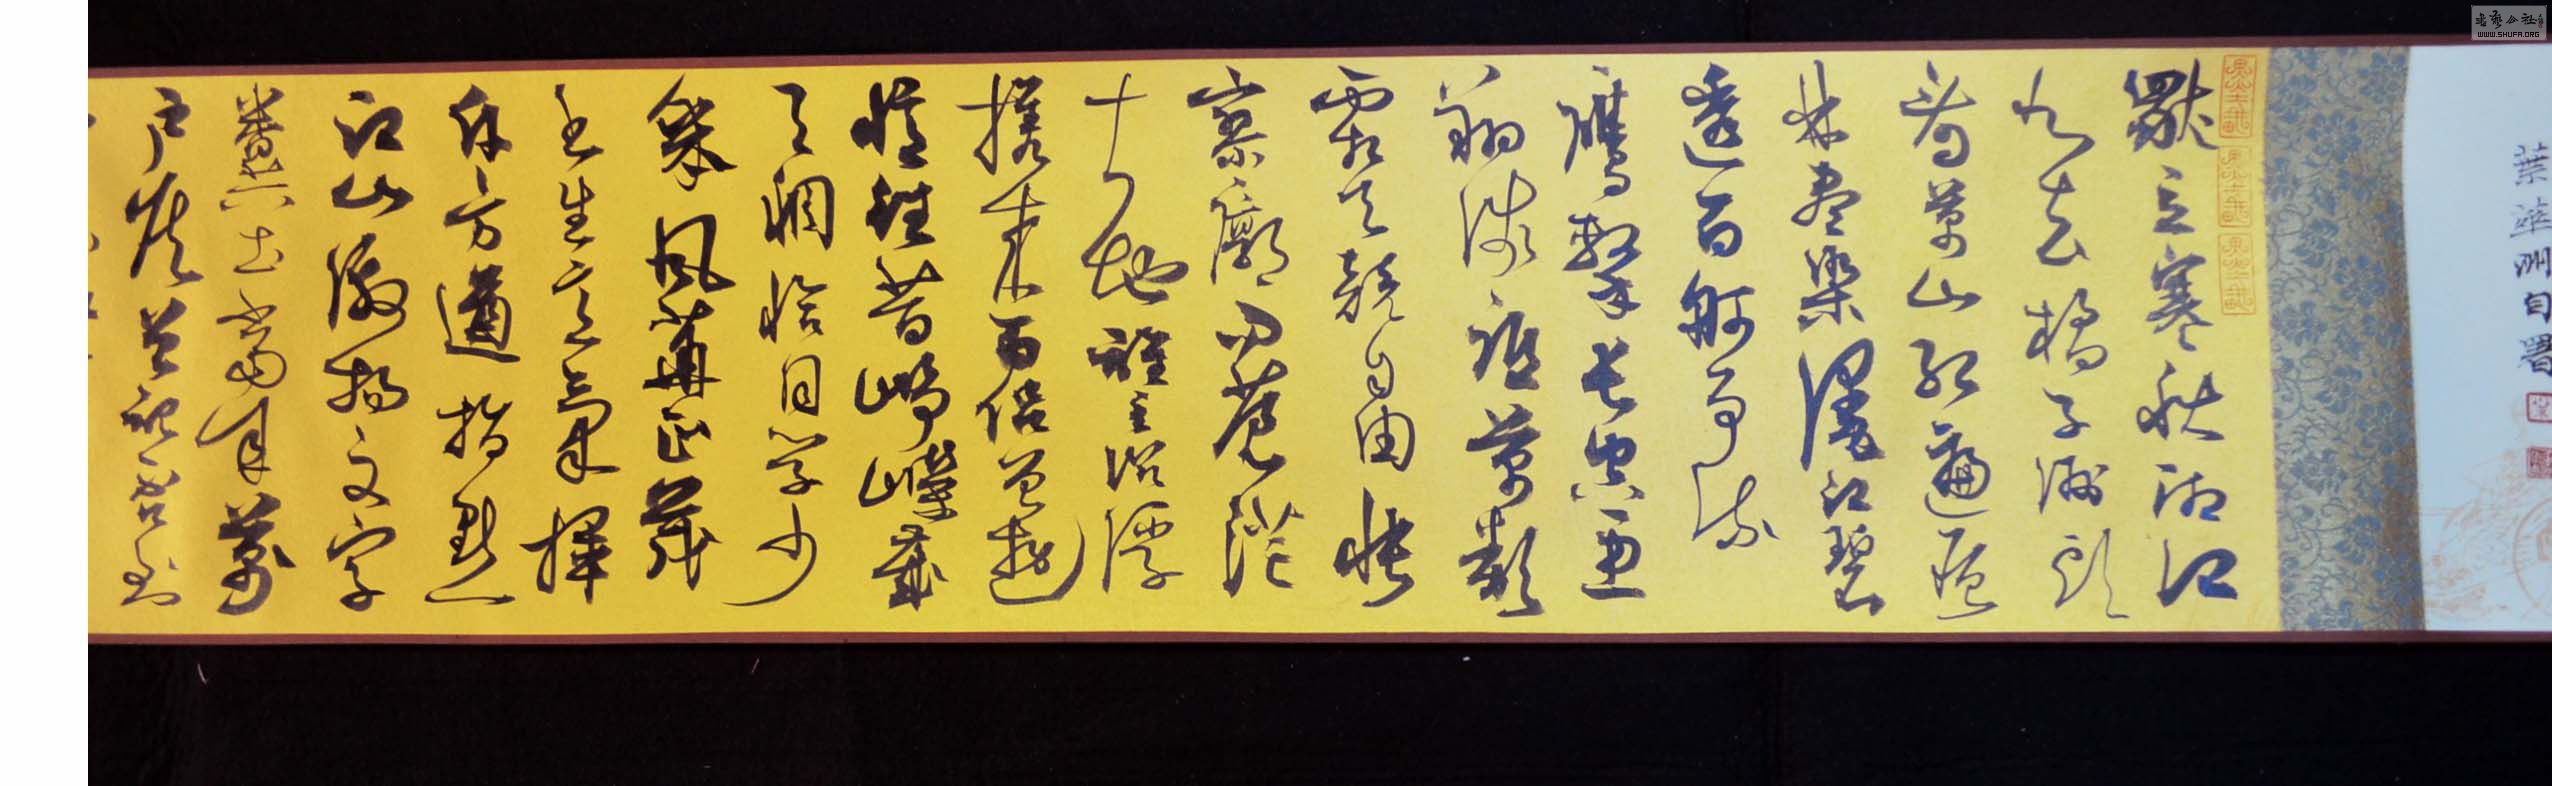 書藝公社
WWW.SHUFA.ORG
自署
獨立寒秋湘江
北去橘子洲頭
看萬山紅遍層
林盡染漫江碧
透百舸争流
鷹擊長空魚
翔淺底萬類
霜天競自由悵
寥廓問蒼茫
大地誰主沉浮
攜来百侣曾遊
憶往昔崢嶸歲
月稠恰同學少
年風華正茂
書生意氣揮
斥方遒指點
江山激揚文字
糞土當年萬
户侯曾記否到